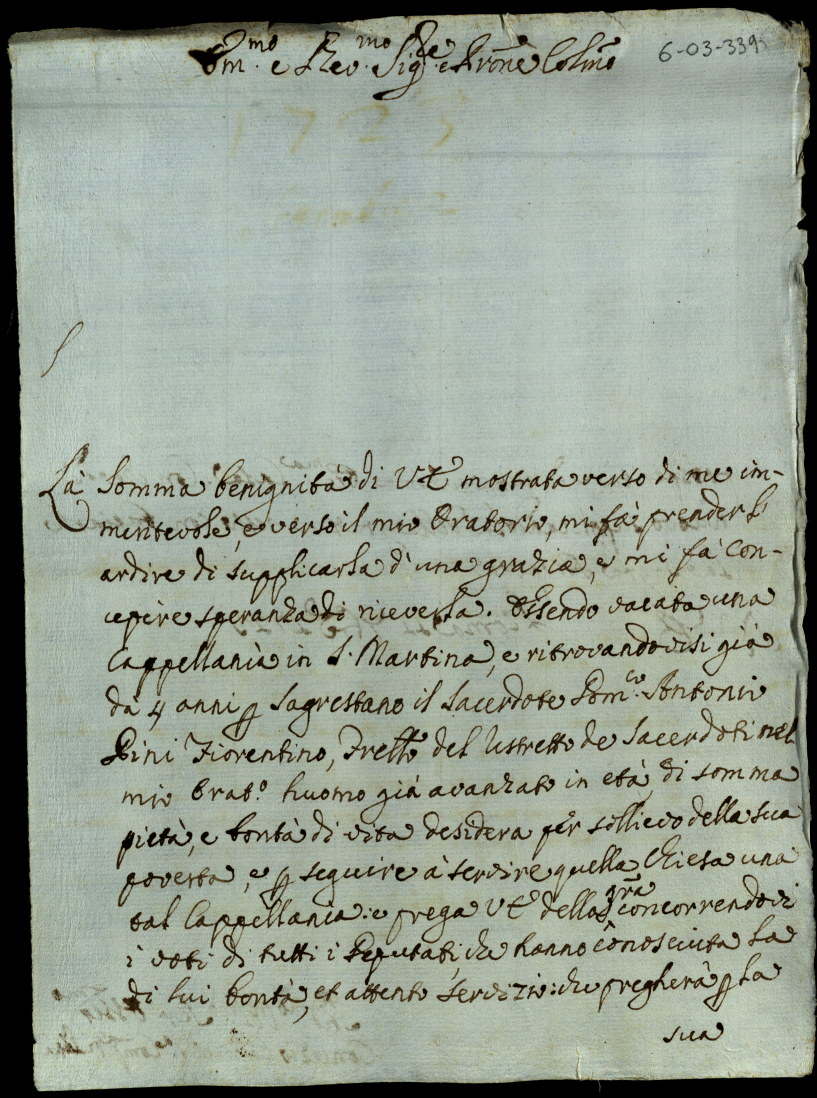 6-03-339
Em.mo e Rev.mo Sig.re e Prone Colmo
1723
La Somma benignità di V.E. mostrata verso di me im-
meritevole, e verso il mio Oratorio, mi fa prender l'
ardire di supplicarla d'una grazia, e mi fà con-
cepire speranza di riceverla. Essendo vacata una
Cappellania in S. Martina, e ritrovandovisi già
da 4 anni p Sagrestano il Sacerdote Dom.co Antonio
Pini Fiorentino, Fretto del Ristretto de Sacerdoti nel
mio Orat.o huomo già avanzato in età, di somma
pietà, e bontà di vita desidera per sollievo della sua
povertà, e p seguire à servire quella Chiesa una
tal Cappellania: e prega V.E. della gra concorrendovi
i voti di tutti i Deputati, che hanno conosciuta la
di lui bontà, et attento servizio: che pregherà p la
sua